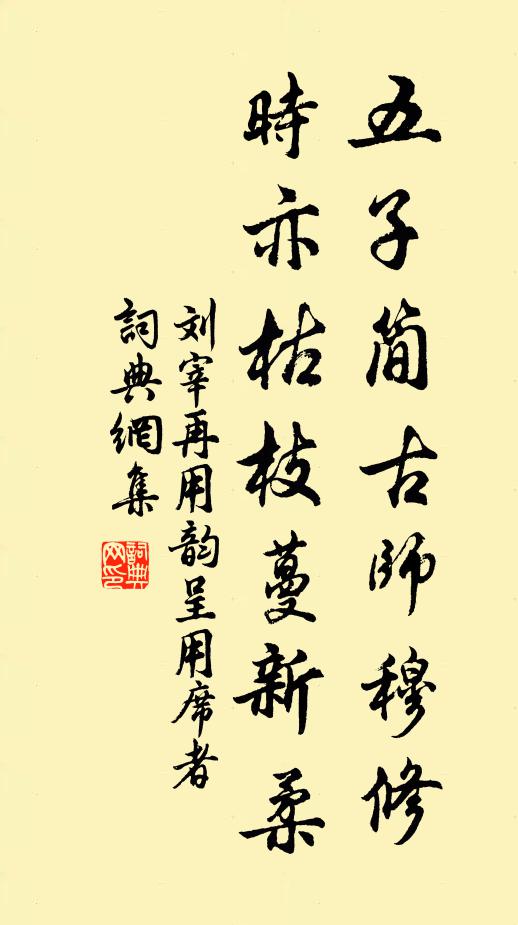 五子简古師穆修
時亦枯枝蔓新柔
刘宰再用韵呈用席者
詞典網集
詞典网印